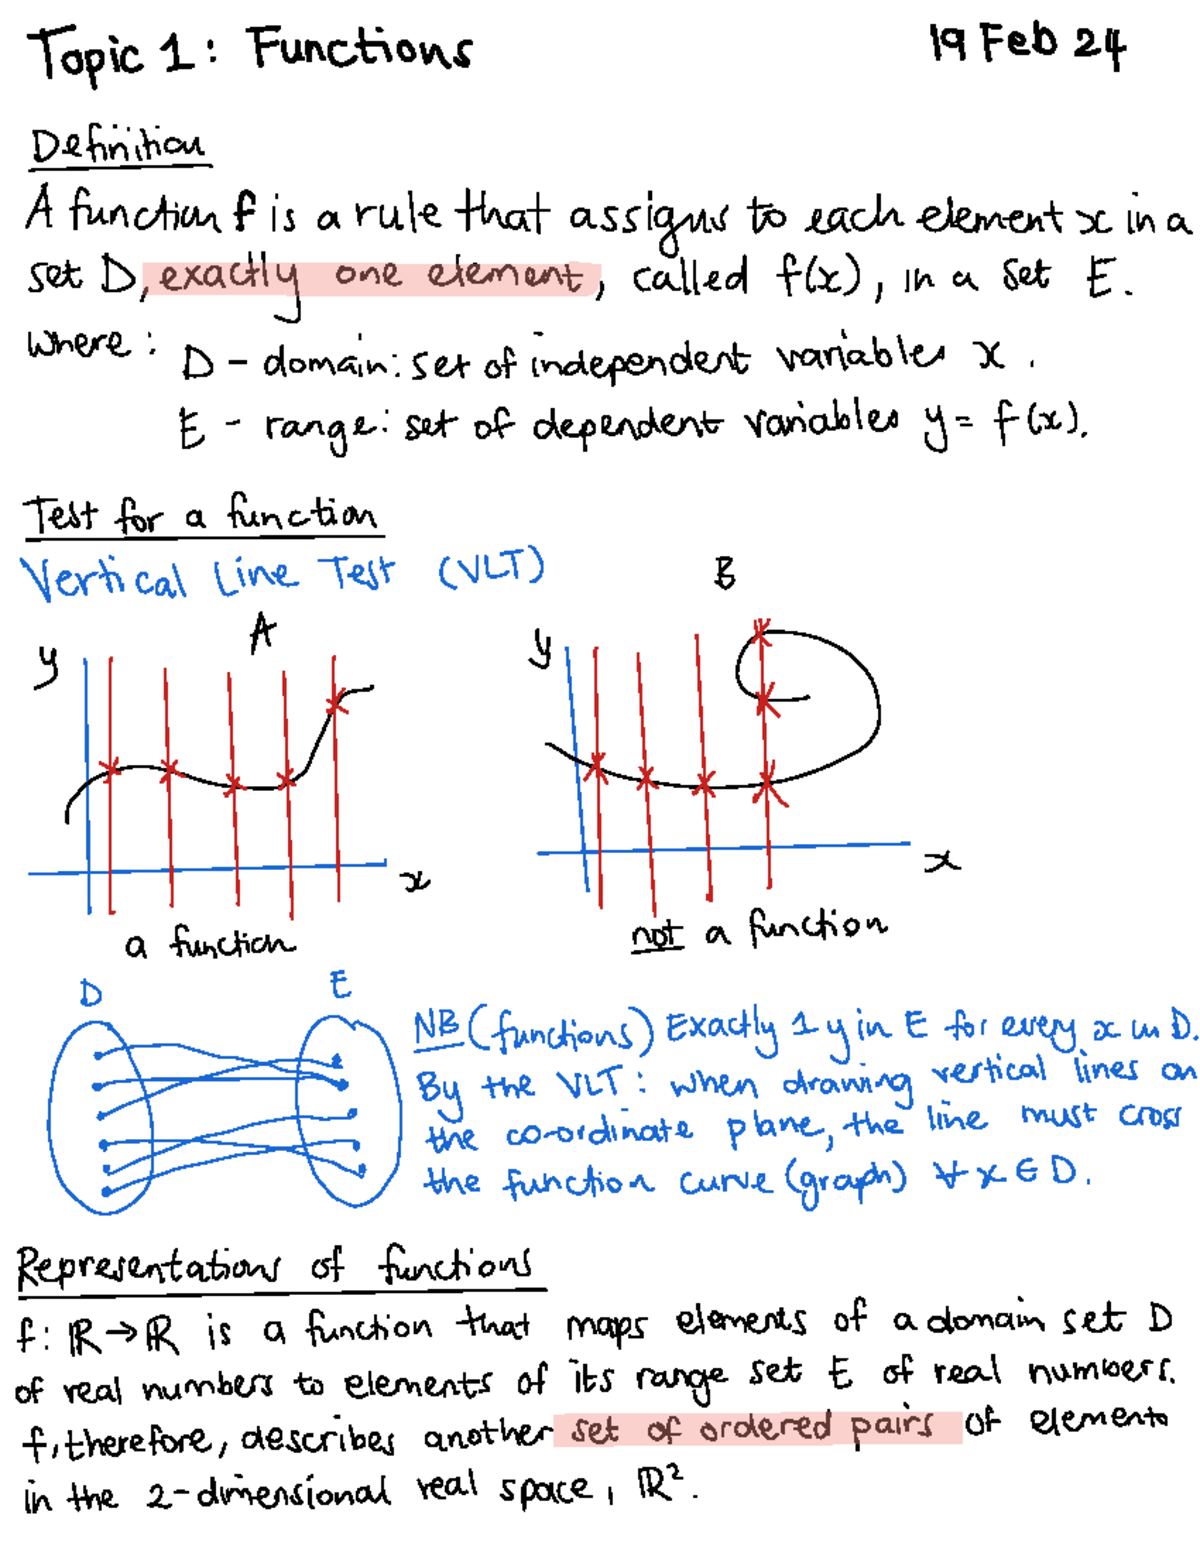 Topic 1: Functions
19 Feb 24
Definition
A function f is a rule that assigns to each element x in a
set D, exactly one element, called f(x), in a set E.
where: D - domain: set of independent variables x.
E - range: set of dependent variables y = f(x).
Test for a function
Vertical Line Test (VLT)
A
B
y
y
x
x
a function
not a function
D
E
NB (functions) Exactly 1 y in E for every x in D.
By the VLT: when drawing vertical lines on
the co-ordinate plane, the line must cross
the function curve (graph) ∀ x ∈ D.
Representations of functions
f: ℝ → ℝ is a function that maps elements of a domain set D
of real numbers to elements of its range set E of real numbers.
f, therefore, describes another set of ordered pairs of elements
in the 2-dimensional real space, ℝ².